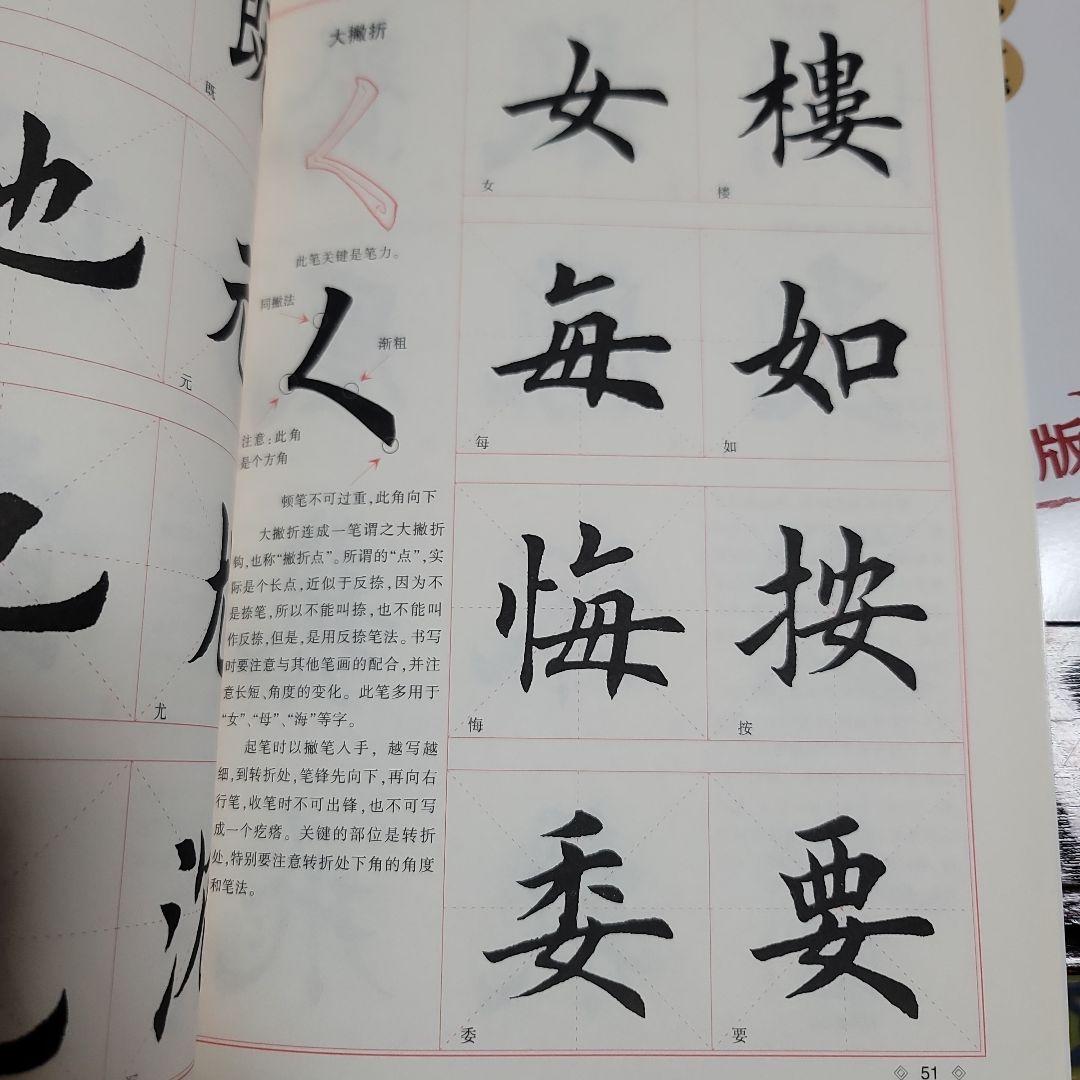 既
也
元
尤
大撇折
此笔关键是笔力。
同撇法
渐粗
注意:此角
是个方角
顿笔不可过重,此角向下
大撇折连成一笔谓之大撇折
钩,也称“撇折点”。所谓的“点”,实
际是个长点,近似于反捺,因为不
是捺笔,所以不能叫捺,也不能叫
作反捺,但是,是用反捺笔法。书写
时要注意与其他笔画的配合,并注
意长短、角度的变化。此笔多用于
“女”、“母”、“海”等字。
起笔时以撇笔入手,越写越
细,到转折处,笔锋先向下,再向右
行笔,收笔时不可出锋,也不可写
成一个疙瘩。关键的部位是转折
处,特别要注意转折处下角的角度
和笔法。
女 樓
女 楼
每 如
每 如
悔 按
悔 按
委 要
委 要
51
版